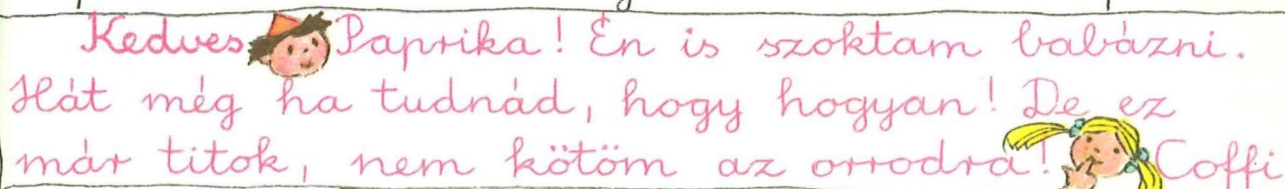 Kedves Paprika! Én is szoktam babázni.
Hát még ha tudnád, hogy hogyan! De ez
már titok, nem kötöm az orrodra! Coffi